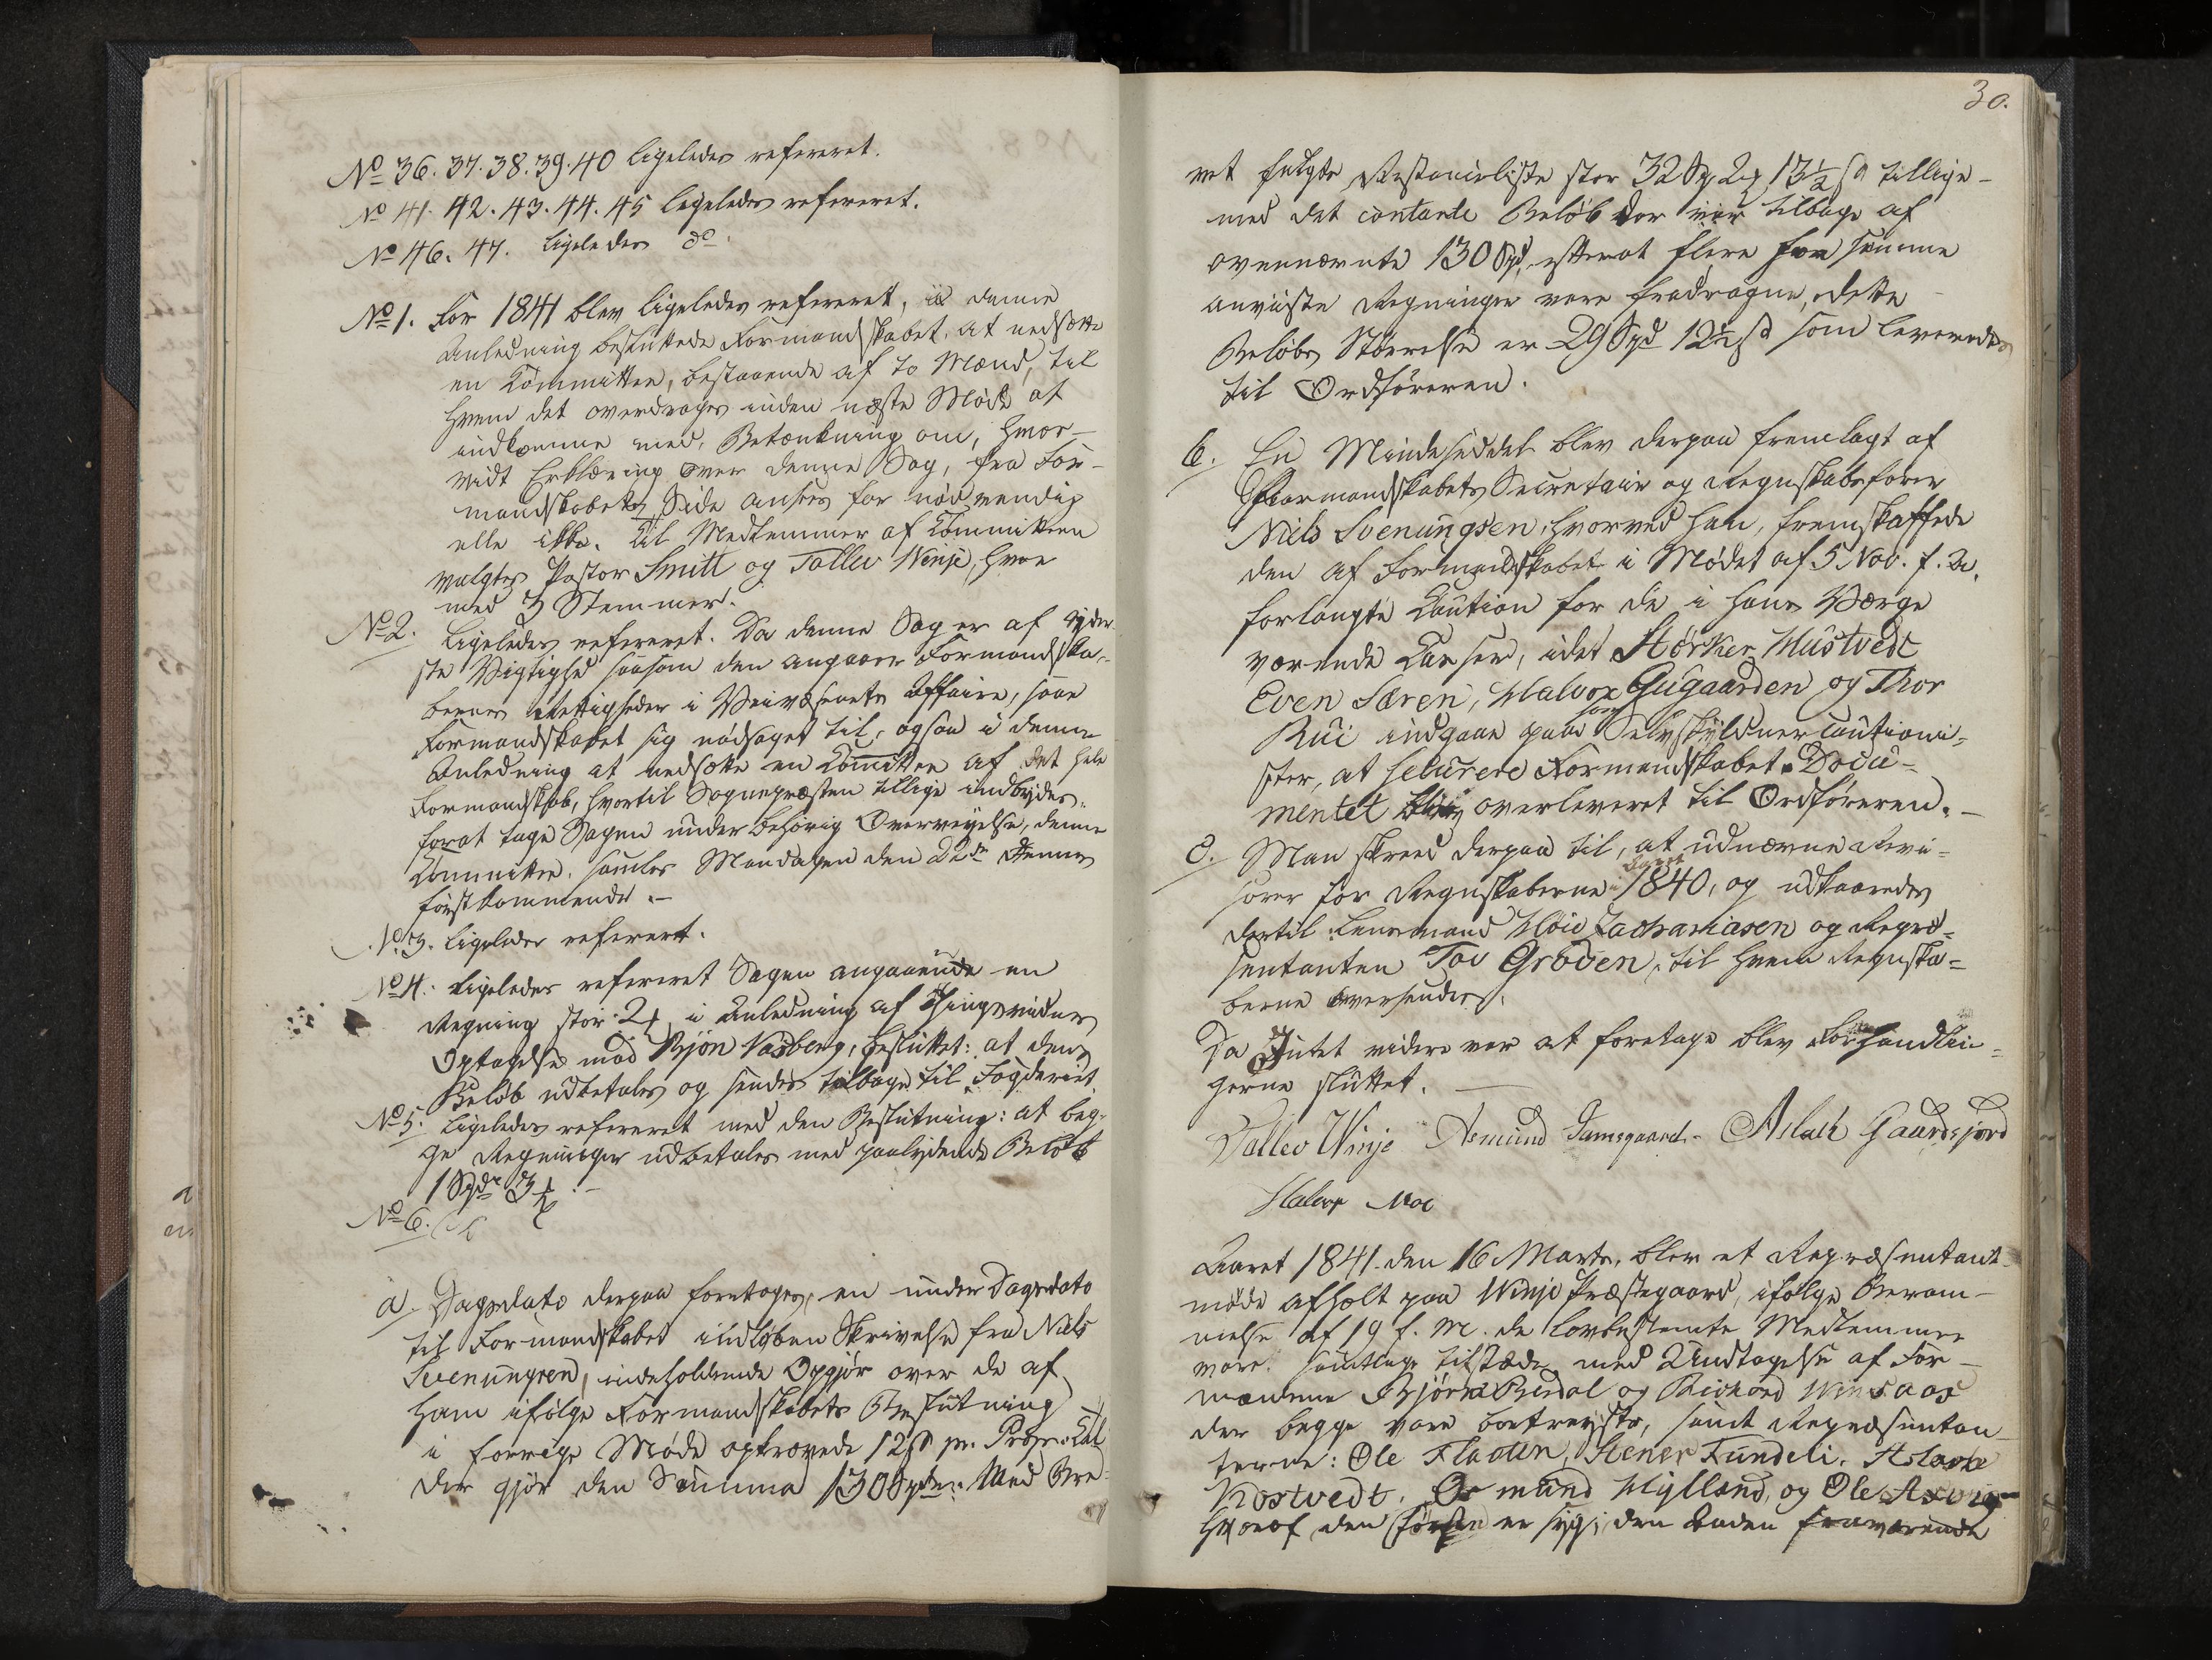 No 36. 37. 38. 39. 40 ligeledes refereret.
No 41. 42. 43. 44. 45 ligeledes refereret.
No 46. 47. ligeledes do.
No 1. For 1841 blev ligeledes refereret, i denne
Anledning besluttede Formandskabet, at nedsætte
en Committee, bestaaende af to Mænd, til
hvem det overdrages inden næste Møde at
indkomme med, Betænkning om, hvor-
vidt Erklæring over denne Sag, fra For-
mandskabets Side ansees for nødvendig
elle ikke. Til Medlemmer af Committeen
valgtes Pastor Smitt og Tallev Winje, hver
med 3 Stemmer.
No 2. Ligeledes refereret. Da denne Sag er af yder-
ste Vigtighed saasom den angaaer Formandska-
bernes Rettigheder i Veivæsenets Affaire, saae
Formandskabet sig nødsaget til, ogsaa i denne
Anledning at nedsætte en Committee af det hele
Formandskab, hvortil Sognepræsten tillige indbydes,
forat tage Sagen under behørig Overveyelse, denne
Committee, samles Mandagen den 22de dennes
førstkommende.-
No 3. Ligeledes refereret.
No 4. Ligeledes refereret Sagen angaaende en
Regning stor 2 i Anledning af Thingsvidnes
Optagelse mod Bjøn Vadberg, besluttet: at dens
Beløb udbetales og sendes tilbage til Fogderiet.
No 5. Ligeledes refereret med den Beslutning: at beg-
ge Regninger udbetales med paalydende Beløb
1 Spdr 3
No 6.
a. Dagsdato derpaa foretoges, en under Dagsdato
til Formandskabet indløben Skrivelse fra Niels
Svenungsen, indeholdende Opgjør over de af
ham ifølge Formandskabets Beslutning
i forrige Møde opkrævede 12 s pr. Præste
der gjør den Summa 130 Spdr. Med Bre-
30.
vet fulgte Restanceliste stor 32 Sp 2 13½ s tillige-
med det contante Beløb der var tilbage af
ovennævnte 130 Spd, efterat flere for samme
anviiste Regninger vare fradragne, dette
Beløbs Størrelse er 29 Spd 12½ s som leveredes
til Ordføreren.
b. En Mindeseddel blev derpaa fremlagt af
Formandskabets Secretair og Regnskabsfører
Niels Svenungsen, hvorved han, fremskaffede
den af Formandskabet i Mødet af 5 Nov. f. A.
forlangte Caution for de i hans Værge
værende Casser, idet Størker Mustvedt
Even Særen, Halvor Gugaarden og Thor
Rui indgaae paa som Selvskyldnercautioni-
ster, at securere Formandskabet. Docu-
mentet blev overleveret til Ordføreren.-
c. Man skreed derpaa til, at udnævne Revi-
sorer for Regnskaberne i Aaret 1840, og udkaaredes
dertil: Lensmand Høie Zachariasen og Repræ-
sentanten Tov Groven, til hvem Regnska-
berne oversendes.
Da Intet videre var at foretage blev Forhandlin-
gerne sluttet.
Tallev Winje Asmund Jamsgaard. Aslak Gaardsjord
Halvor Moe
Aaret 1841 den 16 Marts, blev et Repræsentant-
møde afholdt paa Winje Præstegaard, ifølge Beram-
melse af 19 f. M. de lovbestemte Medlemmer
vare samtlige tilstæde med Undtagelse af For-
mændene Bjørn Berdal og Richard Winsaas
der begge vare bortreyste, samt Repræsentan-
terne: Ole Flaaten, Stener Fundeli, Aslak
Nostvedt, Osmund Hylland, og Ole
hvoraf den første er syg; den Anden fraværende